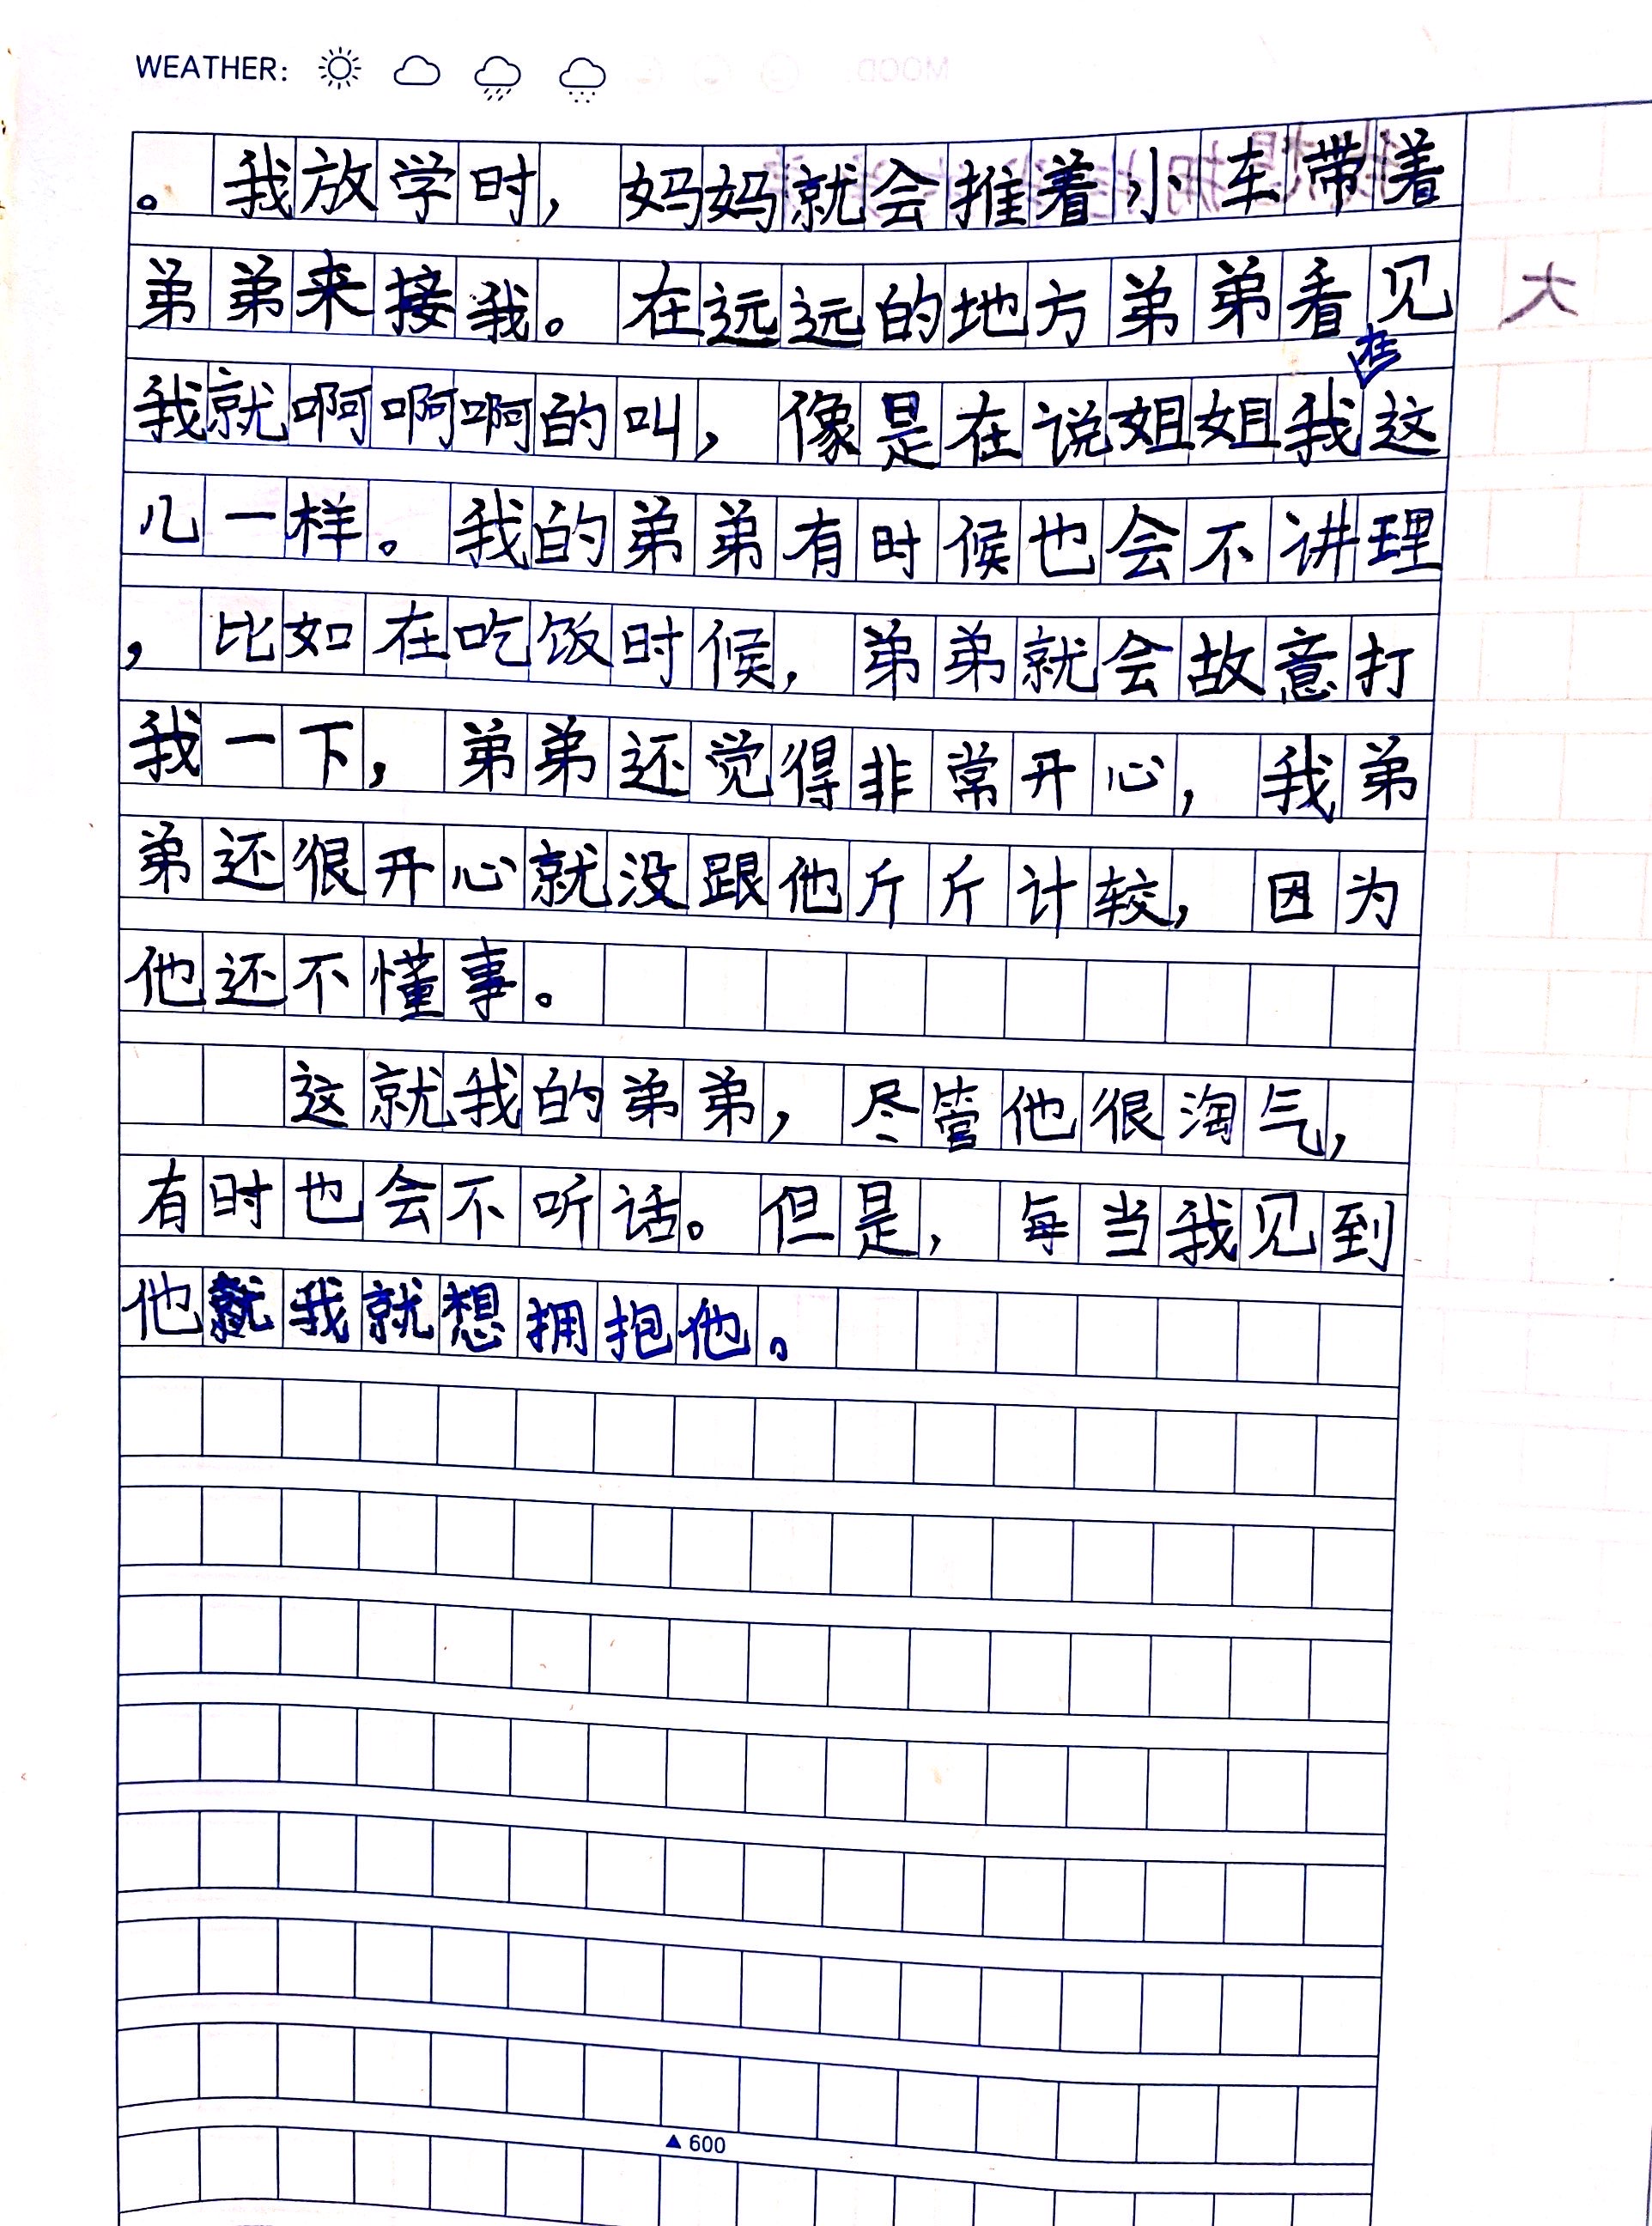 WEATHER:
。我放学时，妈妈就会推着小车带着
弟弟来接我。在远远的地方弟弟看见
我就啊啊啊的叫，像是在说姐姐我在这
儿一样。我的弟弟有时候也会不讲理
，比如在吃饭时候，弟弟就会故意打
我一下，弟弟还觉得非常开心，我弟
弟还很开心就没跟他斤斤计较，因为
他还不懂事。
这就我的弟弟，尽管他很淘气，
有时也会不听话。但是，每当我见到
他就我就想拥抱他。
大
▲600